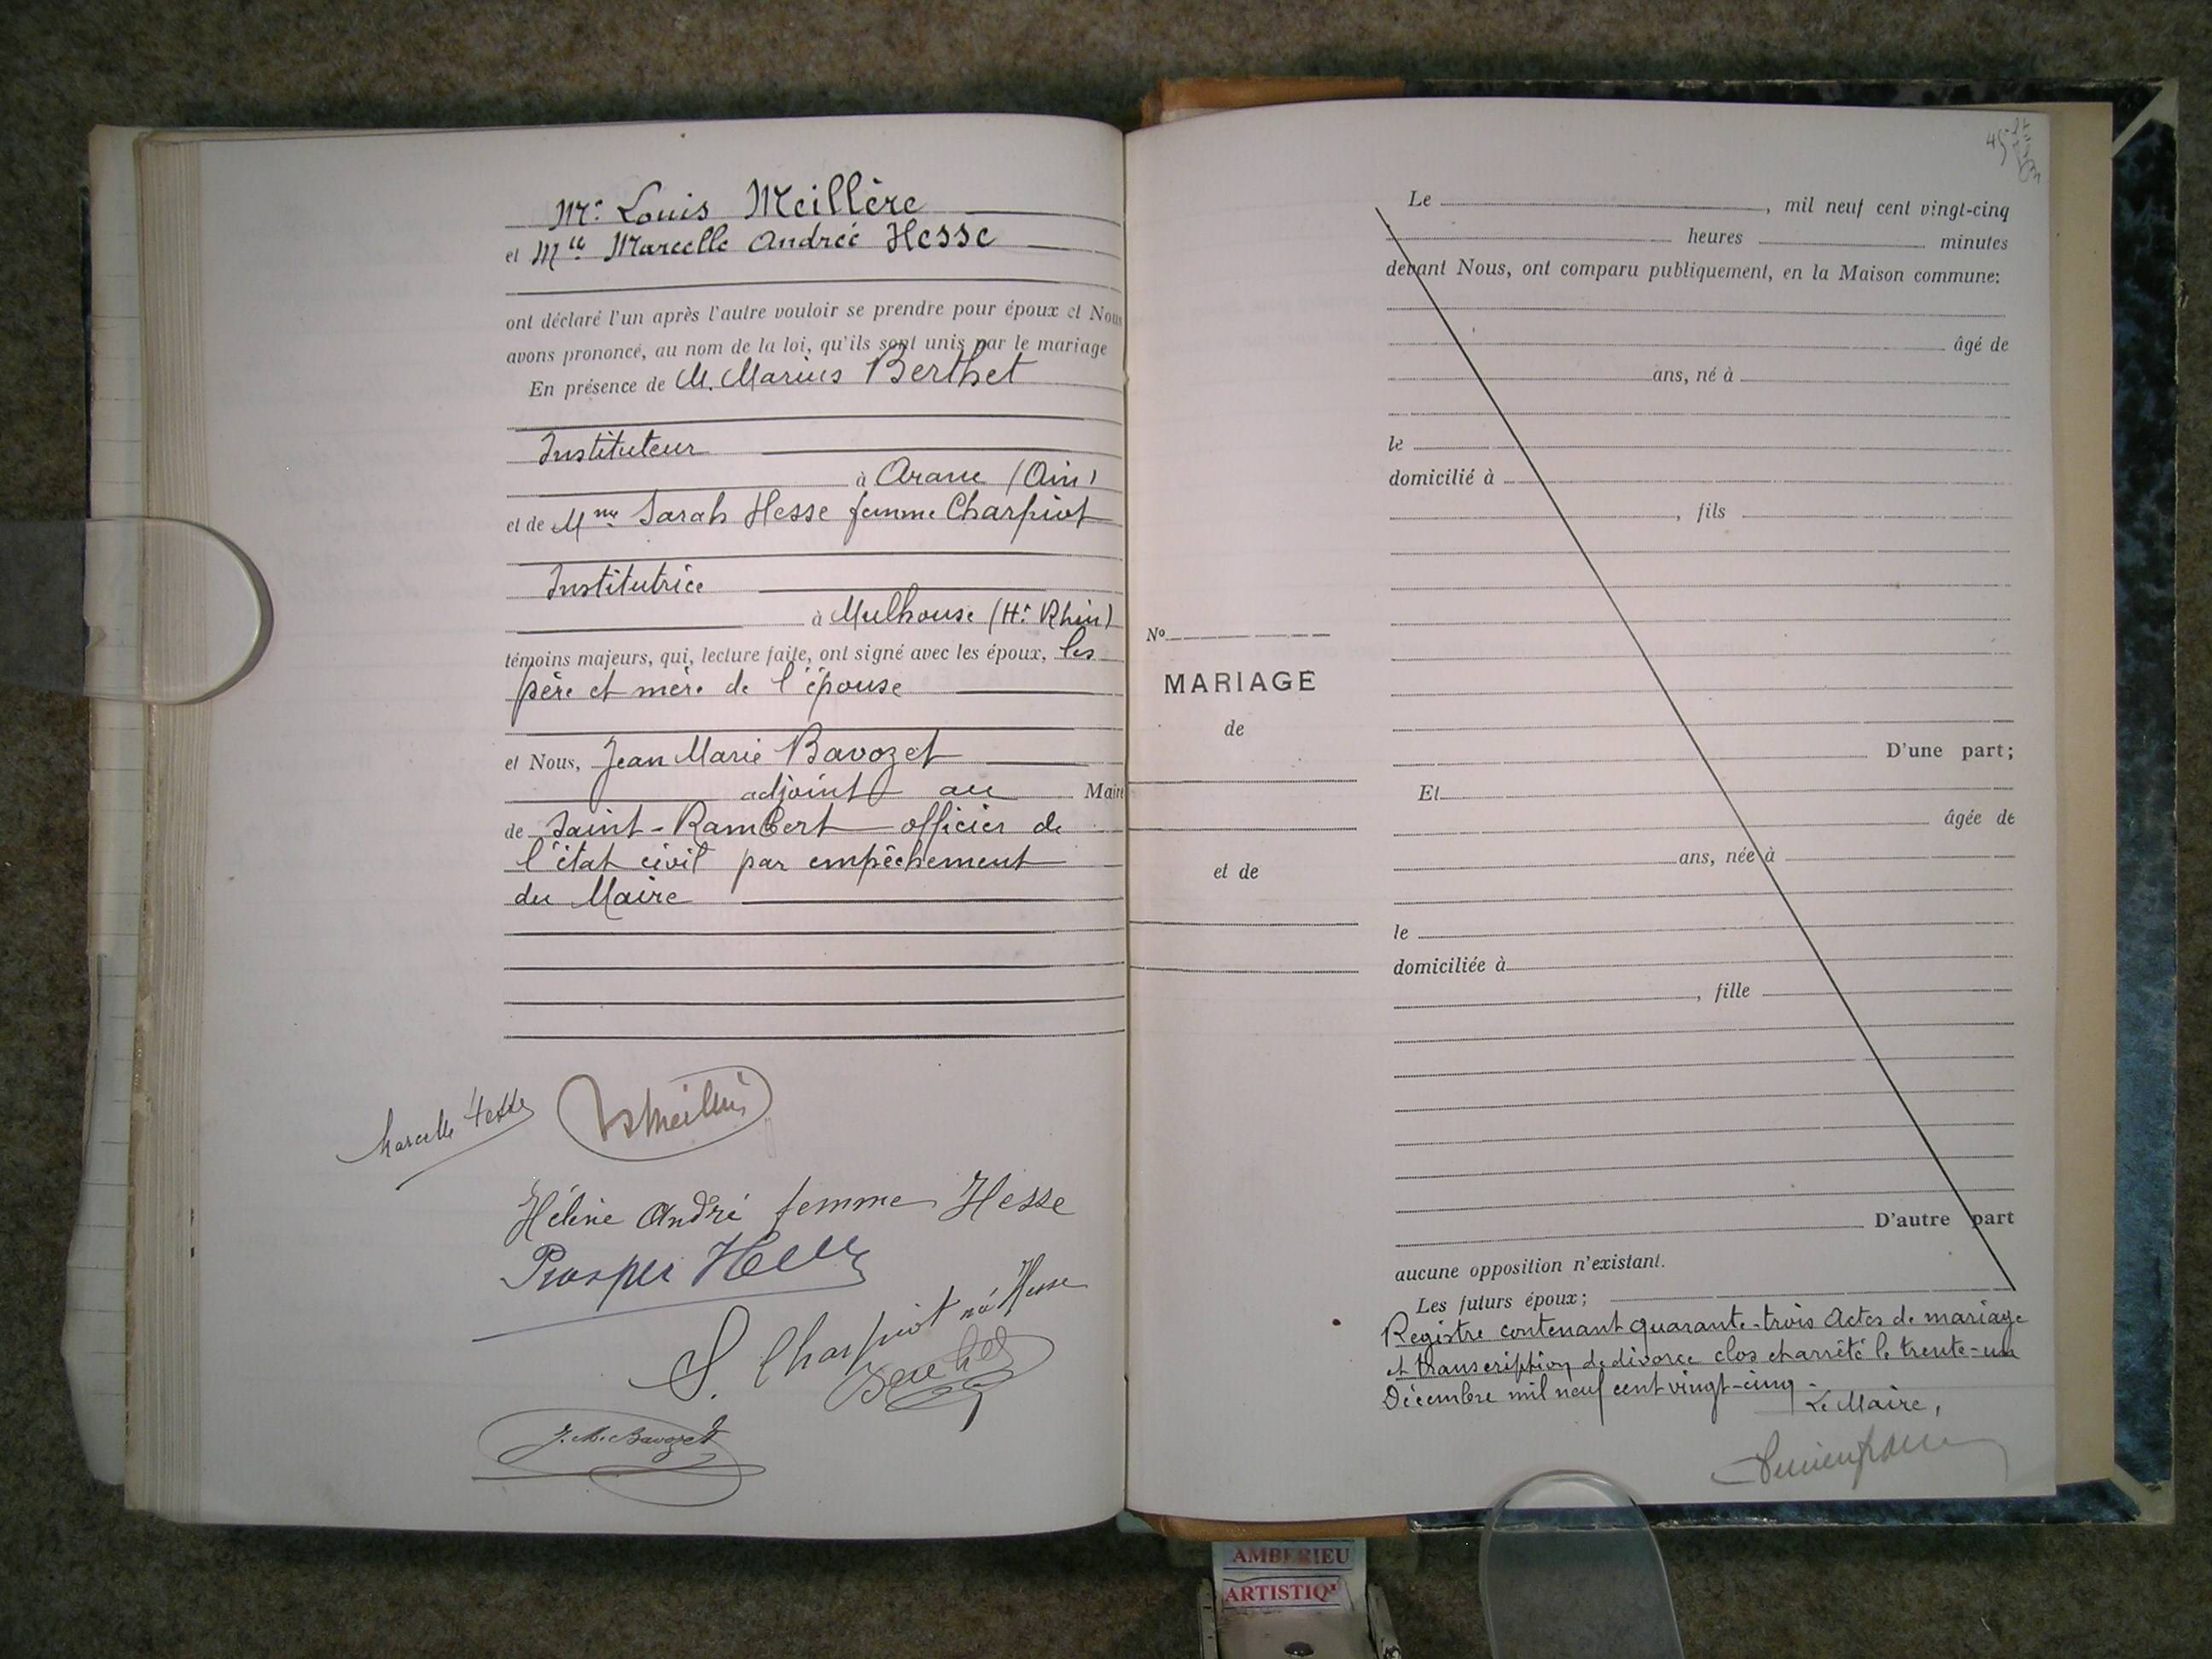 Mr. Louis Meillère
et Mlle Marcelle Andréé Hesse
ont déclaré l'un après l'autre vouloir se prendre pour époux et Nous
avons prononcé, au nom de la loi, qu'ils sont unis par le mariage
En présence de M. Marius Berthet
Instituteur
à Arane (Ain)
et de Mme Sarah Hesse femme Charpiot
Institutrice
à Mulhouse (Ht Rhin)
témoins majeurs, qui, lecture faite, ont signé avec les époux, les
père et mère de l'épouse
et Nous, Jean Marie Bavozet
adjoint au Maire
de Saint-Rambert officier de
l'état civil par empêchement
du Maire
Marcelle Hesse
Hélène André femme Hesse
Prosper Hesse
S. Charpiot née Hesse
J. M. Bavozet
Le , mil neuf cent vingt-cinq
heures minutes
devant Nous, ont comparu publiquement, en la Maison commune:
âgé de
ans, né à
le
domicilié à
, fils
No
MARIAGE
de
et de
D'une part;
Et
âgée de
ans, née à
le
domiciliée à
, fille
D'autre part
aucune opposition n'existant.
Les futurs époux;
Registre contenant quarante-trois Actes de mariage
et transcription de divorce clos et arrêté le trente-un
Décembre mil neuf cent vingt-cinq.
Le Maire,
AMBERIEU
ARTISTIQ